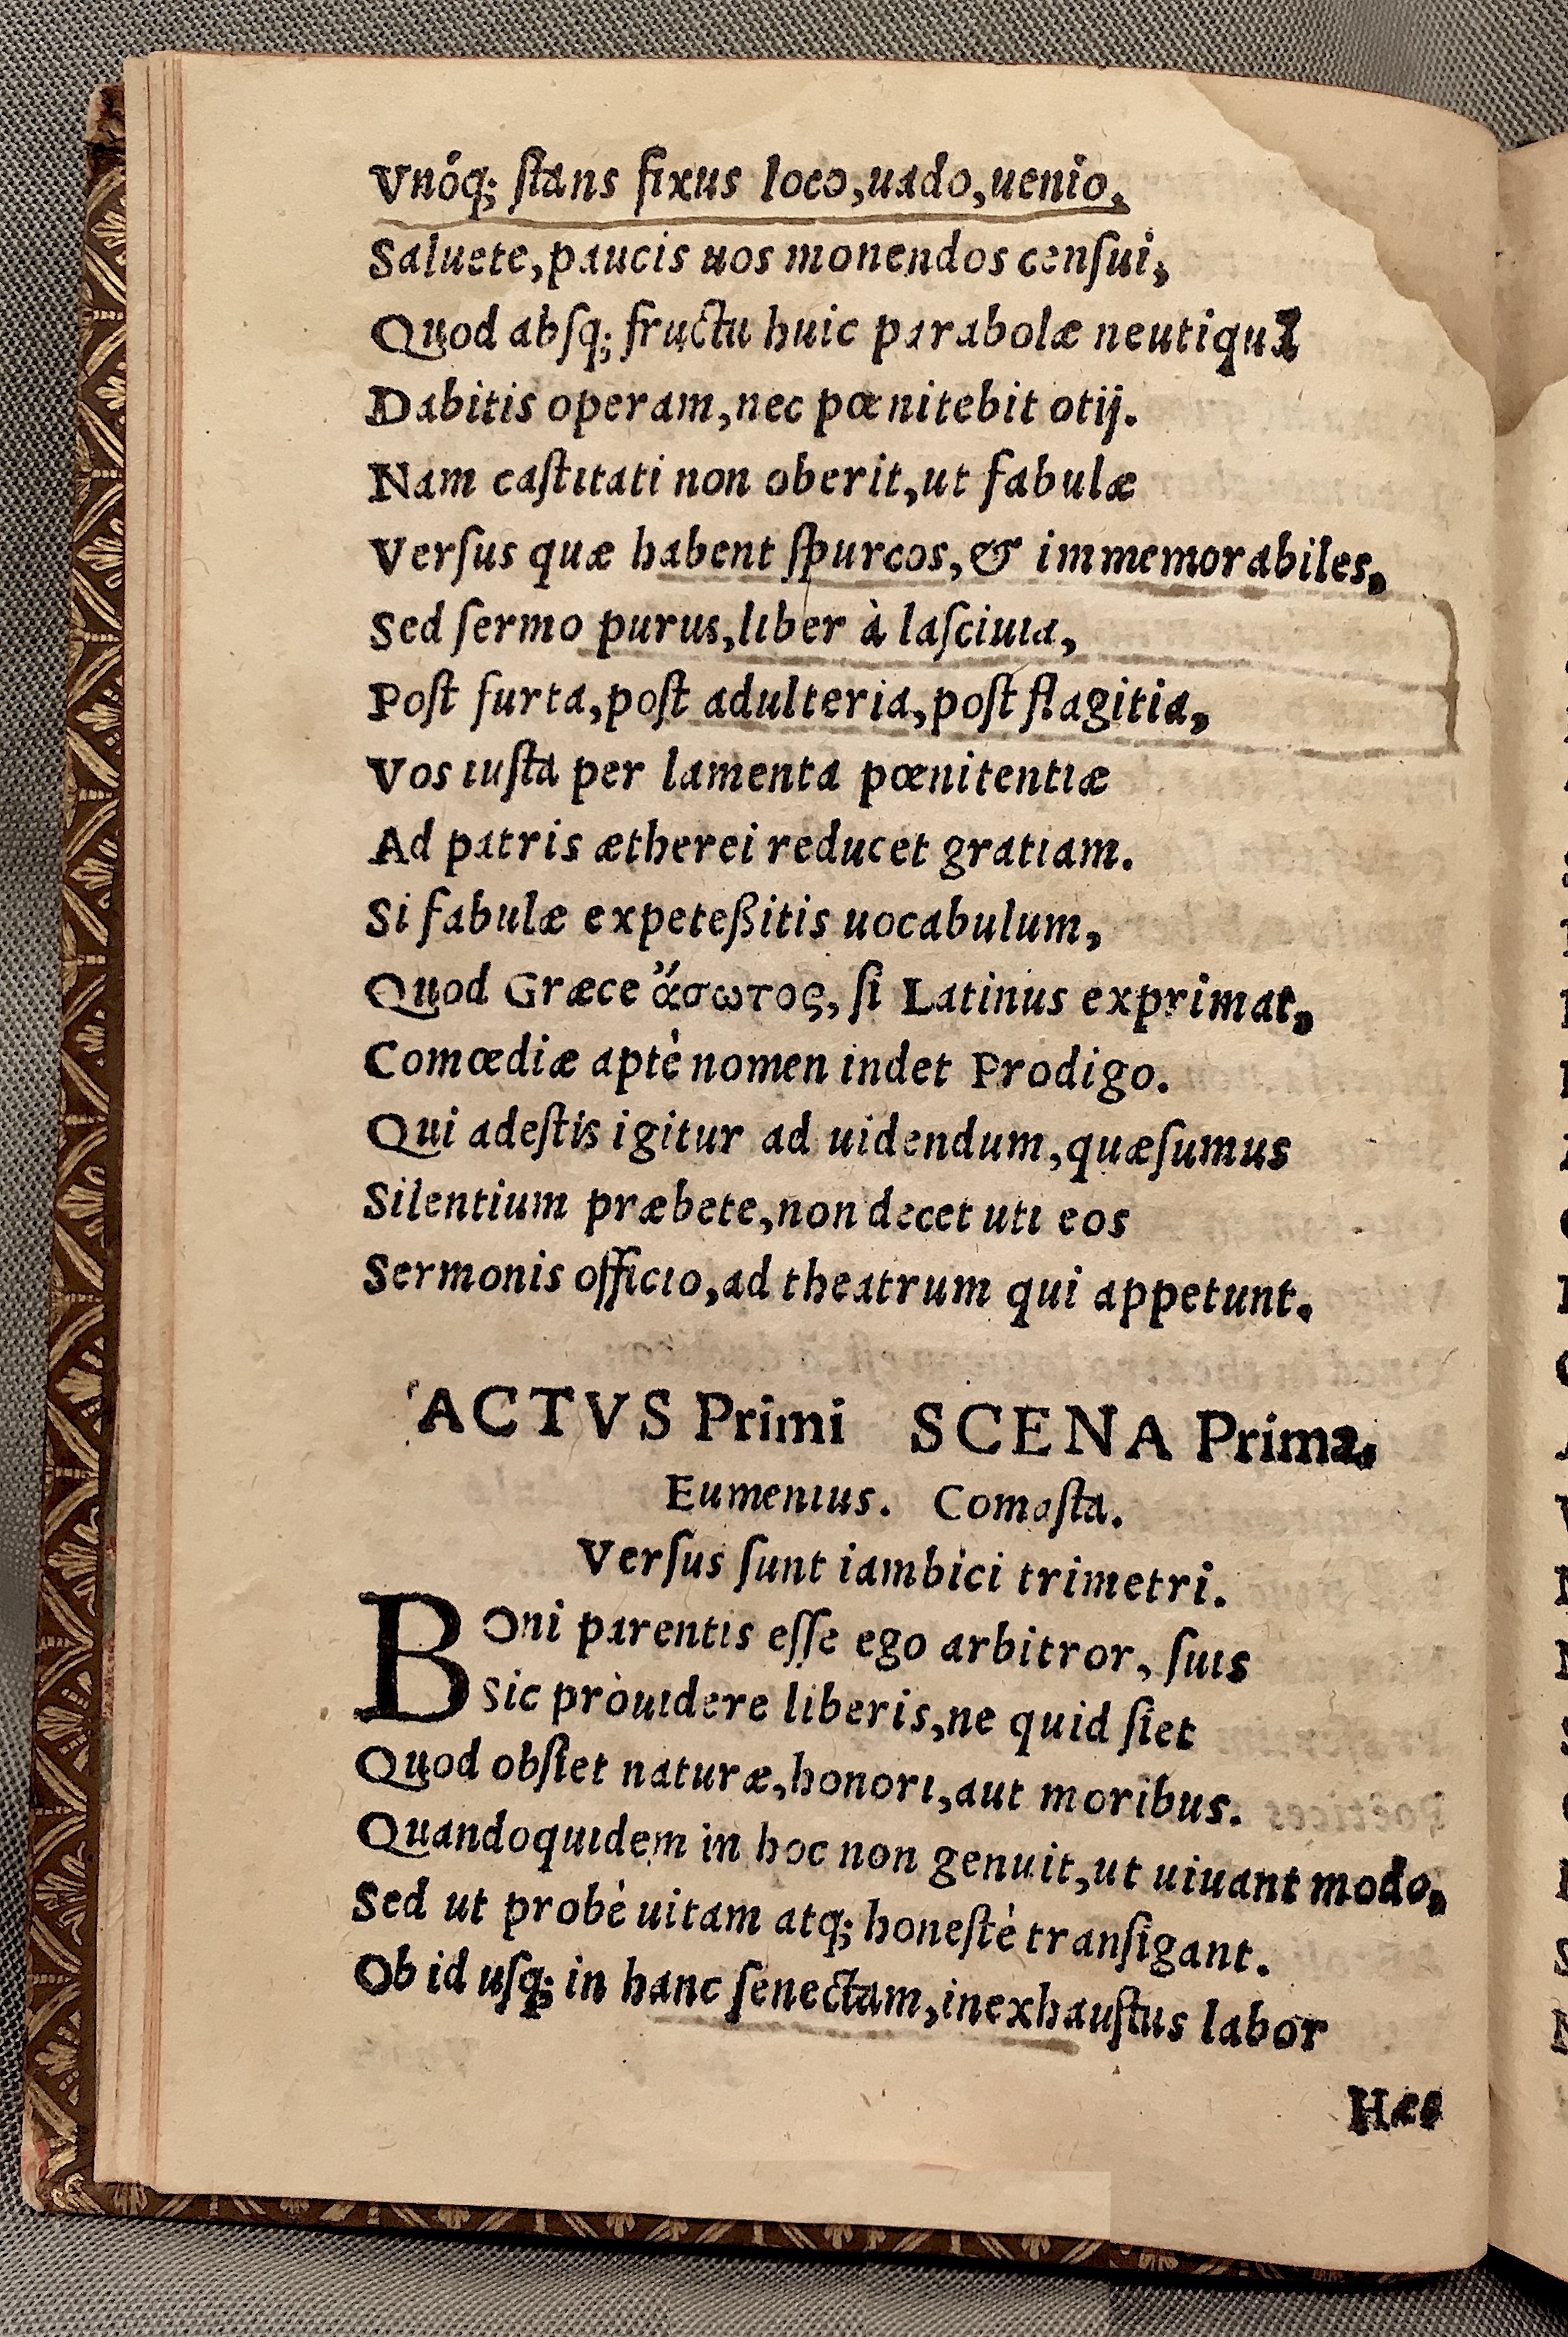 Vnóq; ſtans fixus loco,uado,uenio.
Saluete,paucis uos monendos cenſui,
Quod abſq; fructu huic parabolæ neutiquã
Dabitis operam,nec pœnitebit otij.
Nam caſtitati non oberit,ut fabulæ
Verſus quæ habent ſpurcos,& immemorabiles,
Sed ſermo purus,liber à laſciuia,
Poſt furta,poſt adulteria,poſt flagitia,
Vos iuſta per lamenta pœnitentiæ
Ad patris ætherei reducet gratiam.
Si fabulæ expeteßitis uocabulum,
Quod Græce ἄσωτος, ſi Latinus exprimat,
Comœdiæ aptè nomen indet Prodigo.
Qui adeſtis igitur ad uidendum,quæſumus
Silentium præbete,non decet uti eos
Sermonis officio,ad theatrum qui appetunt.
ACTVS Primi SCENA Prima.
Eumenius. Comaſta.
Verſus ſunt iambici trimetri.
BOni parentis eſſe ego arbitror, ſuis
Sic pròuidere liberis,ne quid ſiet
Quod obſiet naturæ,honori,aut moribus.
Quandoquidem in hoc non genuit,ut uiuant modo,
Sed ut probè uitam atq; honeſtè tranſigant.
Ob id uſq; in hanc ſenectam,inexhauſtus labor
Hæc